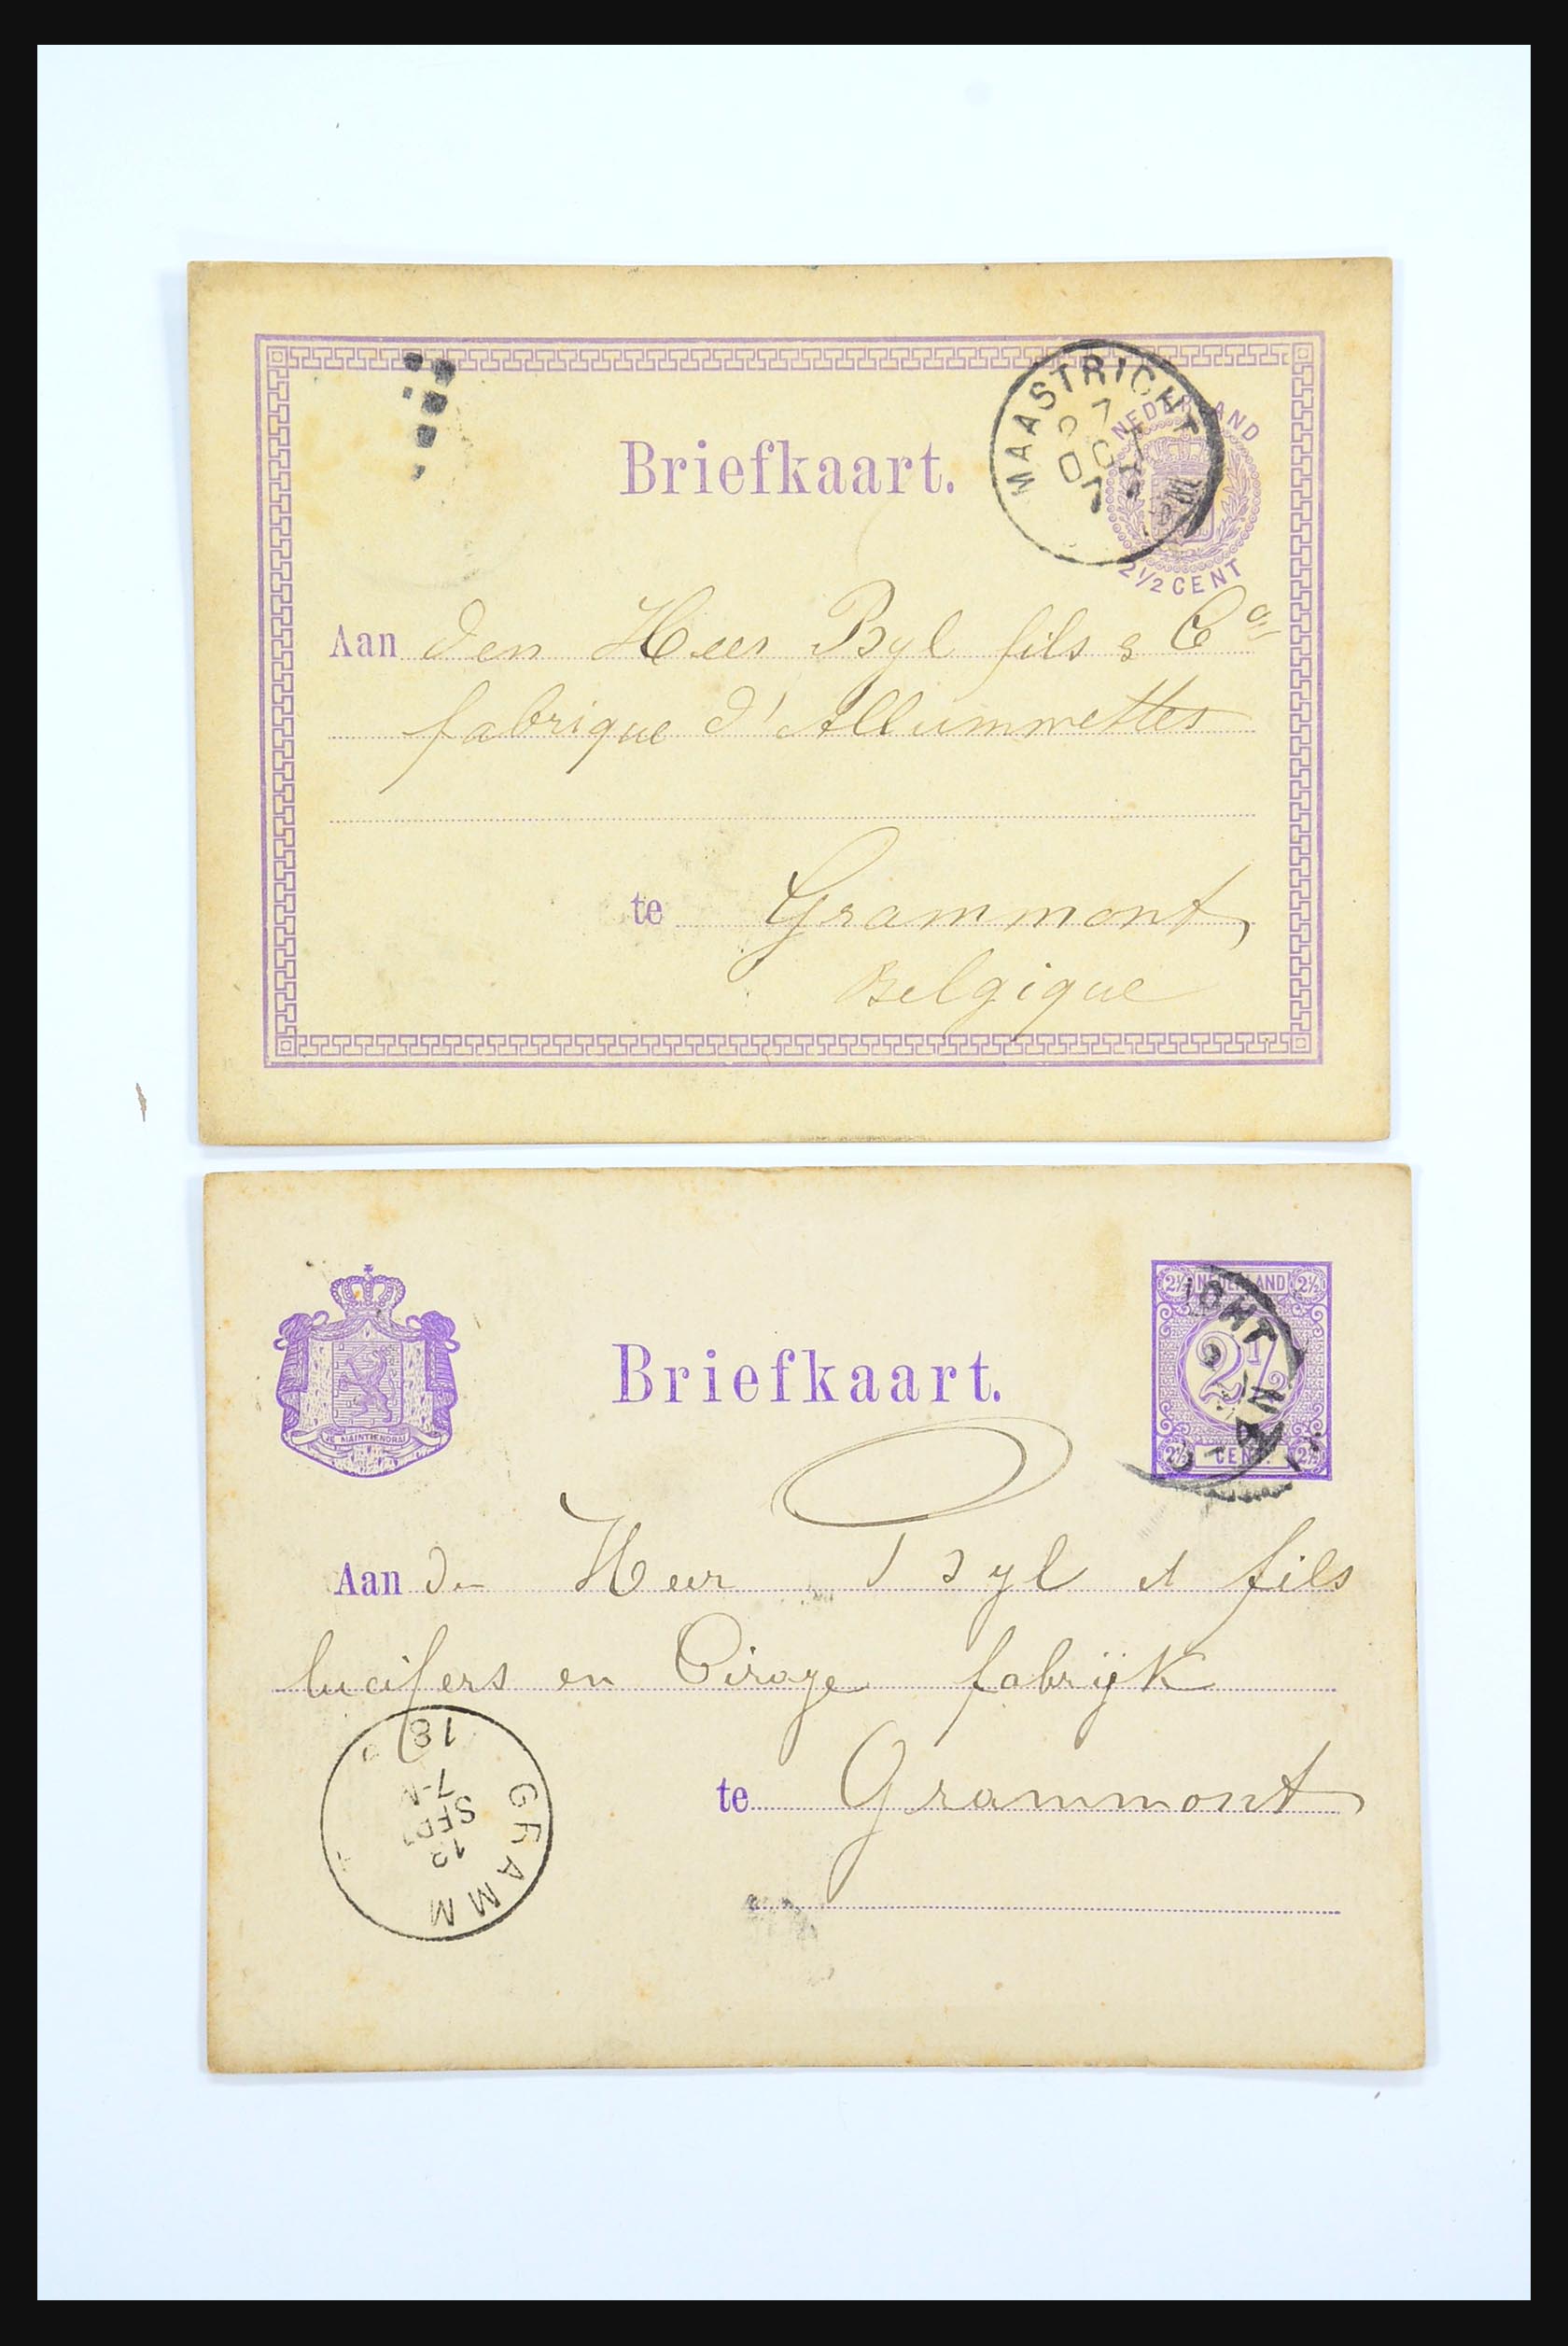 MAASTRICHT
NEDERLAND
Briefkaart.
2½ CENT
Aan den Heer Byl fils & Co
fabrique d'Allummettes
te Grammont,
Belgique
2½ NEDERLAND 2½
2½
2½ CENT. 2½
JE MAINTIENDRAI
Briefkaart.
Aan de Heer Byl et fils
lucifers en Cirage fabrijk
te Grammont
GRAMM
12
SEPT
7-
18